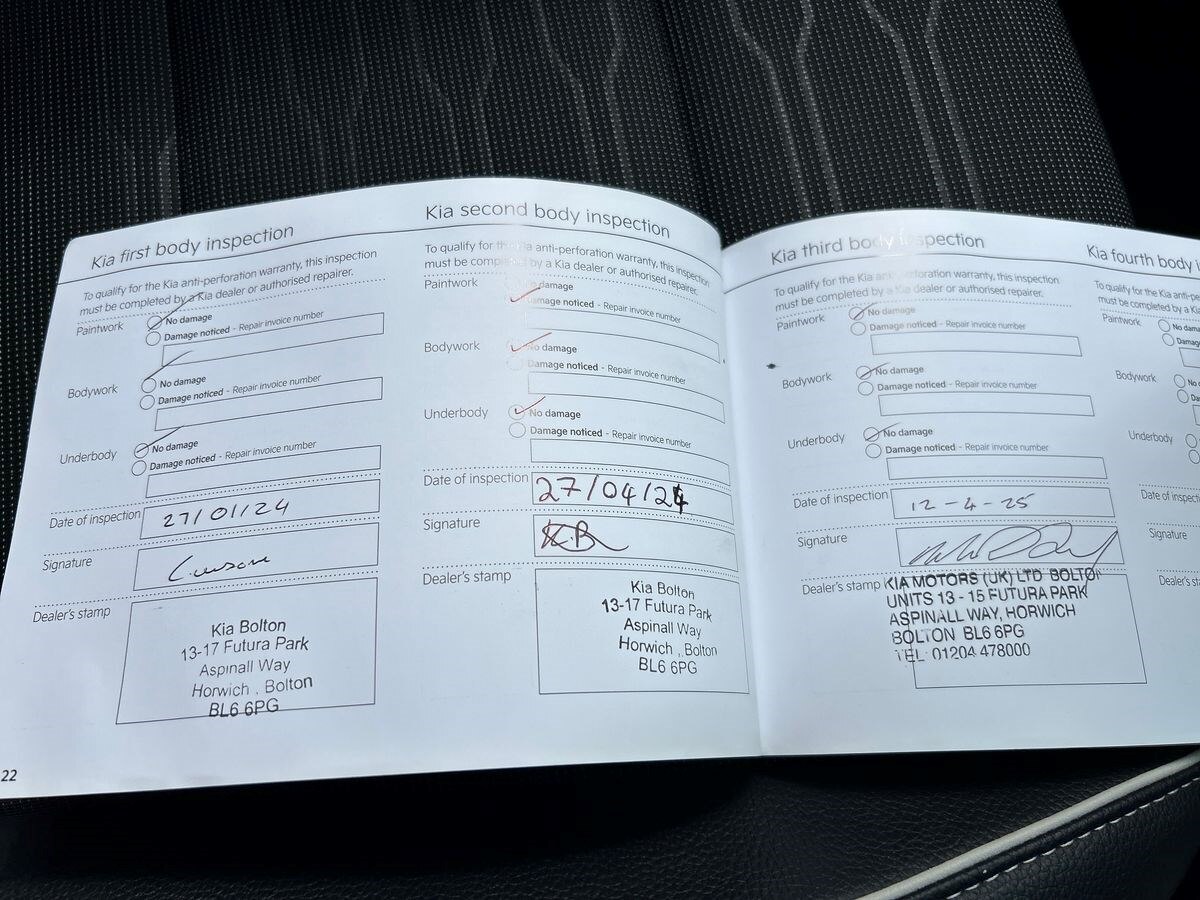 Kia first body inspection
To qualify for the Kia anti-perforation warranty, this inspection
must be completed by a Kia dealer or authorised repairer.
Paintwork
No damage
Damage noticed - Repair invoice number
Bodywork
No damage
Damage noticed - Repair invoice number
Underbody
No damage
Damage noticed - Repair invoice number
Date of inspection
27/01/24
Signature
Dealer's stamp
Kia Bolton
13-17 Futura Park
Aspinall Way
Horwich , Bolton
BL6 6PG
22
Kia second body inspection
To qualify for the Kia anti-perforation warranty, this inspection
must be completed by a Kia dealer or authorised repairer.
Paintwork
No damage
Damage noticed - Repair invoice number
Bodywork
No damage
Damage noticed - Repair invoice number
Underbody
No damage
Damage noticed - Repair invoice number
Date of inspection
27/04/24
Signature
Dealer's stamp
Kia Bolton
13-17 Futura Park
Aspinall Way
Horwich , Bolton
BL6 6PG
Kia third body inspection
To qualify for the Kia anti-perforation warranty, this inspection
must be completed by a Kia dealer or authorised repairer.
Paintwork
No damage
Damage noticed - Repair invoice number
Bodywork
No damage
Damage noticed - Repair invoice number
Underbody
No damage
Damage noticed - Repair invoice number
Date of inspection
12-4-25
Signature
Dealer's stamp
KIA MOTORS (UK) LTD BOLTON
UNITS 13 - 15 FUTURA PARK
ASPINALL WAY, HORWICH
BOLTON BL6 6PG
TEL: 01204 478000
Kia fourth body i
To qualify for the Kia anti-pe
must be completed by a Kia
Paintwork
No dama
Damag
Bodywork
No
Da
Underbody
Date of inspect
Signature
Dealer's st